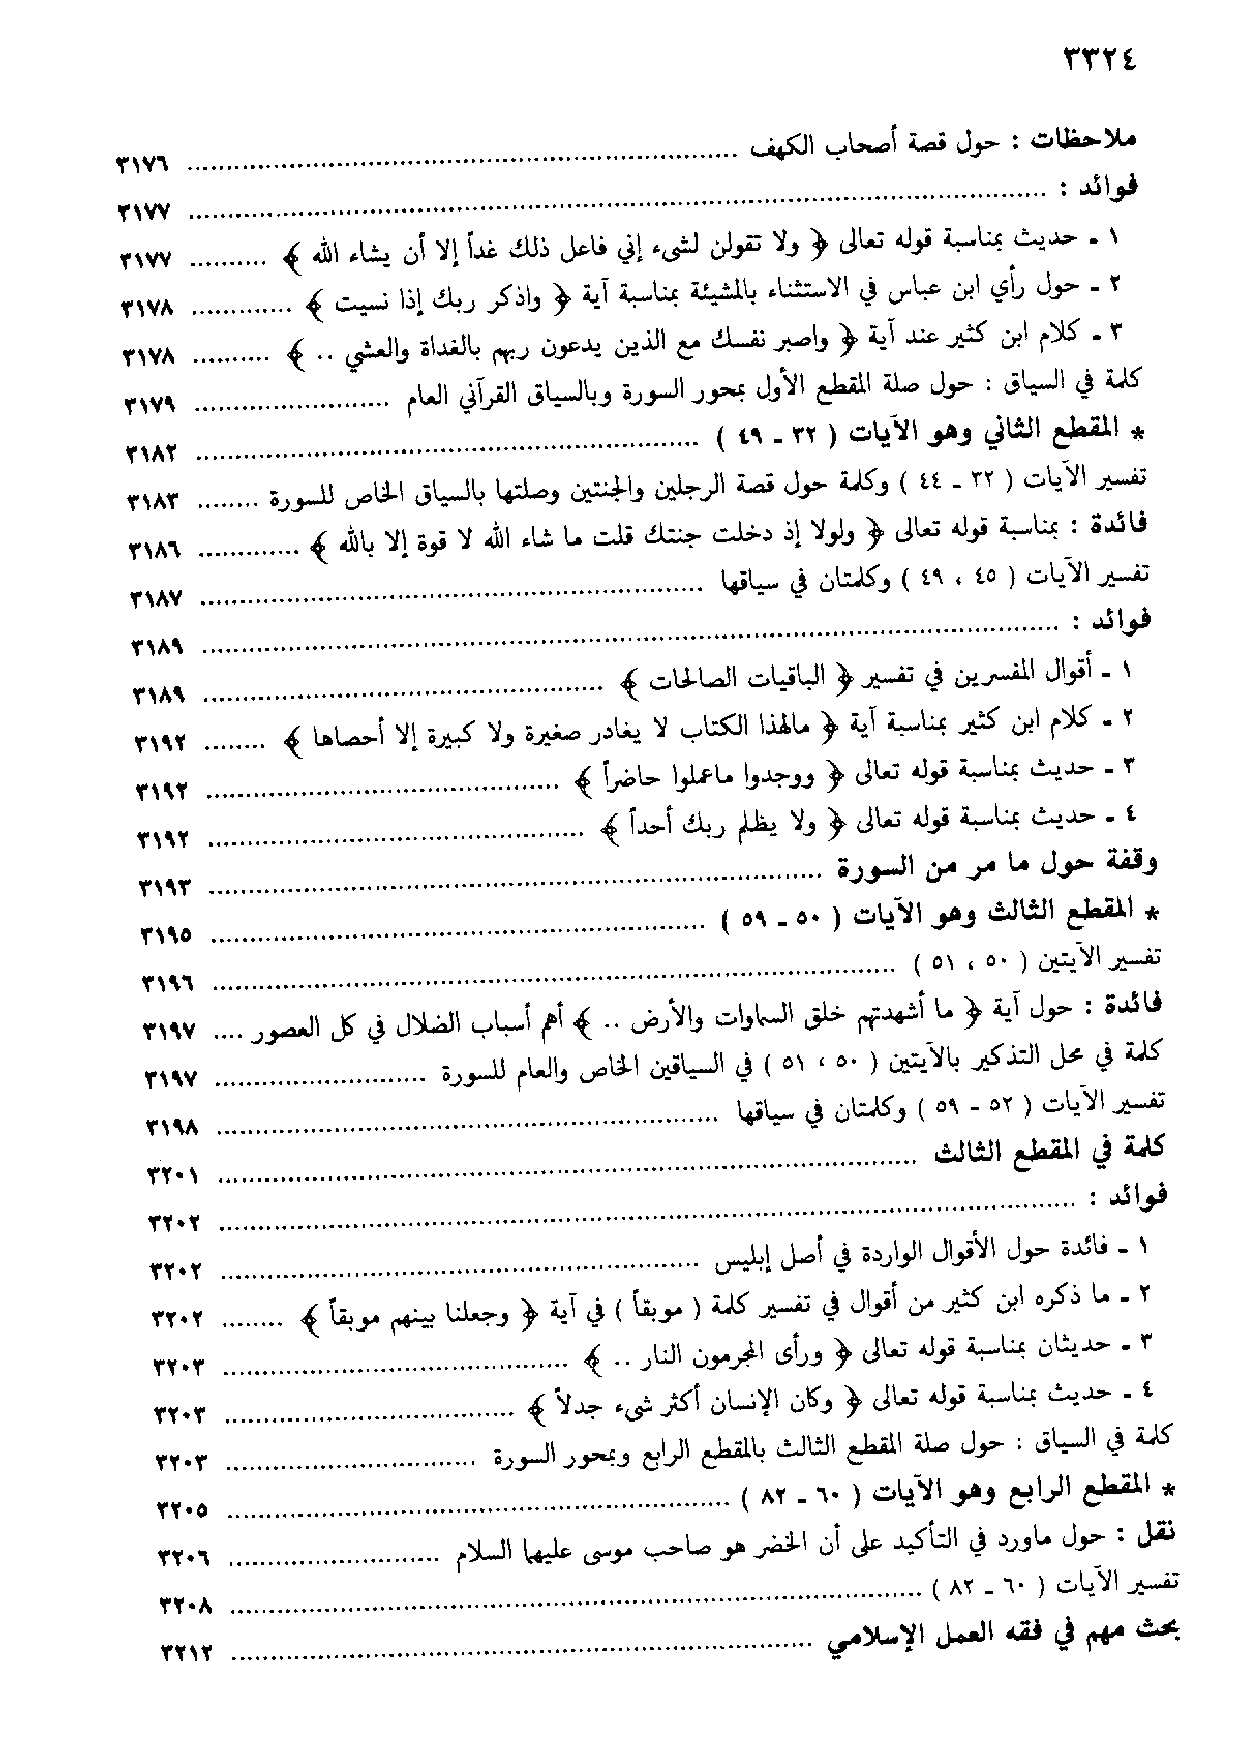 ٣٣٢٤
ملاحظات : حول قصة أصحاب الكهف ........ ٣١٧٦
فوائد : ........ ٣١٧٧
١ - حديث بمناسبة قوله تعالى ﴿ ولا تقولن لشىء إني فاعل ذلك غداً إلا أن يشاء الله ﴾ .......... ٣١٧٧
٢ - حول رأي ابن عباس في الاستثناء بالمشيئة بمناسبة آية ﴿ واذكر ربك إذا نسيت ﴾ ............. ٣١٧٨
٣ - كلام ابن كثير عند آية ﴿ واصبر نفسك مع الذين يدعون ربهم بالغداة والعشي .. ﴾ .......... ٣١٧٨
كلمة في السياق : حول صلة المقطع الأول بمحور السورة وبالسياق القرآني العام ........ ٣١٧٩
* المقطع الثاني وهو الآيات ( ٣٢ - ٤٩ ) ........ ٣١٨٢
تفسير الآيات ( ٣٢ - ٤٤ ) وكلمة حول قصة الرجلين والجنتين وصلتها بالسياق الخاص للسورة ........ ٣١٨٣
فائدة : بمناسبة قوله تعالى ﴿ ولولا إذ دخلت جنتك قلت ما شاء الله لا قوة إلا بالله ﴾ ............. ٣١٨٦
تفسير الآيات ( ٤٥ ، ٤٩ ) وكلمتان في سياقها ........ ٣١٨٧
فوائد : ........ ٣١٨٩
١ - أقوال المفسرين في تفسير ﴿ الباقيات الصالحات ﴾ ........ ٣١٨٩
٢ - كلام ابن كثير بمناسبة آية ﴿ مالهذا الكتاب لا يغادر صغيرة ولا كبيرة إلا أحصاها ﴾ ........ ٣١٩٢
٣ - حديث بمناسبة قوله تعالى ﴿ ووجدوا ماعملوا حاضراً ﴾ ........ ٣١٩٢
٤ - حديث بمناسبة قوله تعالى ﴿ ولا يظلم ربك أحداً ﴾ ........ ٣١٩٢
وقفة حول ما مر من السورة ........ ٣١٩٣
* المقطع الثالث وهو الآيات ( ٥٠ - ٥٩ ) ........ ٣١٩٥
تفسير الآيتين ( ٥٠ ، ٥١ ) ........ ٣١٩٦
فائدة : حول آية ﴿ ما أشهدتهم خلق السماوات والأرض .. ﴾ أهم أسباب الضلال في كل العصور .... ٣١٩٧
كلمة في محل التذكير بالآيتين ( ٥٠ ، ٥١ ) في السياقين الخاص والعام للسورة ........ ٣١٩٧
تفسير الآيات ( ٥٢ - ٥٩ ) وكلمتان في سياقها ........ ٣١٩٨
كلمة في المقطع الثالث ........ ٣٢٠١
فوائد : ........ ٣٢٠٢
١ - فائدة حول الأقوال الواردة في أصل إبليس ........ ٣٢٠٢
٢ - ما ذكره ابن كثير من أقوال في تفسير كلمة ( موبقاً ) في آية ﴿ وجعلنا بينهم موبقاً ﴾ ........ ٣٢٠٢
٣ - حديثان بمناسبة قوله تعالى ﴿ ورأى المجرمون النار .. ﴾ ........ ٣٢٠٣
٤ - حديث بمناسبة قوله تعالى ﴿ وكان الإنسان أكثر شىء جدلاً ﴾ ........ ٣٢٠٣
كلمة في السياق : حول صلة المقطع الثالث بالمقطع الرابع وبمحور السورة ........ ٣٢٠٣
* المقطع الرابع وهو الآيات ( ٦٠ - ٨٢ ) ........ ٣٢٠٥
نقل : حول ماورد في التأكيد على أن الخضر هو صاحب موسى عليهما السلام ........ ٣٢٠٦
تفسير الآيات ( ٦٠ - ٨٢ ) ........ ٣٢٠٨
بحث مهم في فقه العمل الإسلامي ........ ٣٢١٢